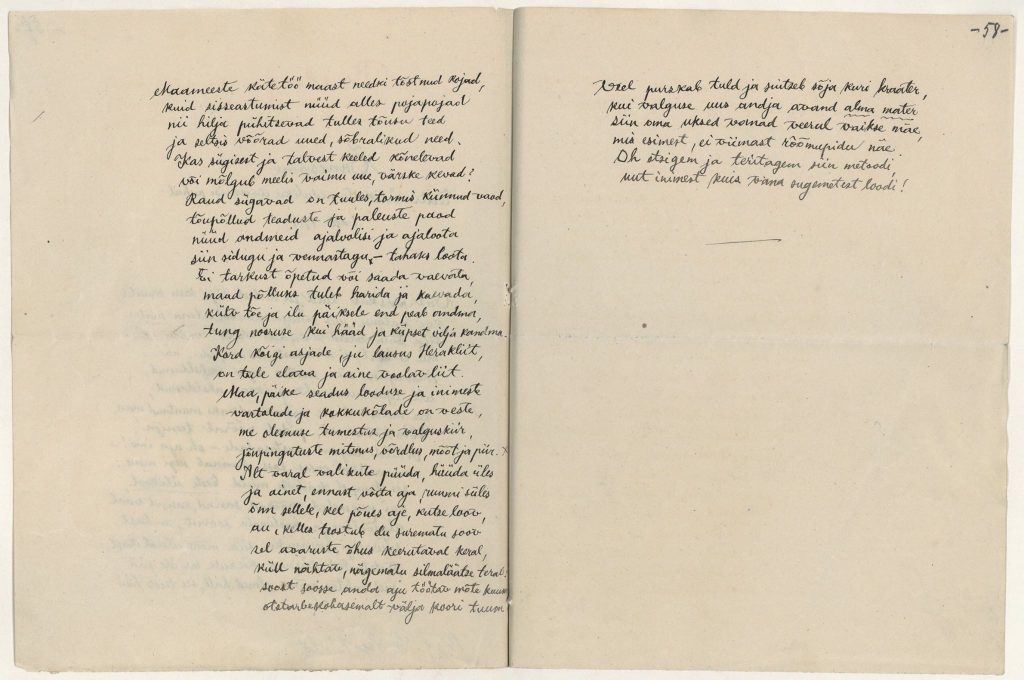 Maameeste kätetöö maast needki tõstnud kojad,
kuid sisseastumist nüüd alles pojapojad
nii hilja pühitsevad tulles tõusu teed
ja seltsis võõrad uued, sõbralikud need.
Kas sügisest ja talvest keeled kõnelevad
või mõlgub meelis vaimu uue, värske kevad?
Raud sügavad on tuules, tormis künnud vaod,
tõupõllud teaduste ja paleuste paod
nüüd andmeid ajalvalisi ja ajaloota
siin sidugu ja vennastagu, – tahaks loota.
Ei tarkust õpetud või saada vaevata,
maad põlluks tuleb harida ja kaevada,
külv tõe ja ilu päiksele end peab andma,
tung nooruse kui hääd ja küpset vilja kandma.
Kord kõigi asjade, ju lausus Herakliit,
on tule elava ja aine voolav liit.
Maa, päike seadus looduse ja inimeste
vartalude ja kokkukõlade on veste,
me olemuse tumestus ja valguskiir,
jõupingutuste mitmus, võrdlus, mõõt ja piir.
Alt varal valikute püüda, hüüda üles
ja ainet, ennast võita aja, ruumi süles
õnn sellele, kel põues aje, kutse loov,
au, kelles teostub elu surematu soov
sel avaruste õhus keerutaval keral,
küll nähtav, nägematu silmaläätse teral:
soost soosse anda aju töötav mõte kuum
otstarbekohasemalt välja koori tuum
-58-
Veel purskab tuld ja suitseb sõja kuri kraater,
kui valguse uus andja avand alma mater
siin oma uksed vanad veerul vaikse mäe,
mis esimest, ei viimast rõõmupidu näe.
Oh otsigem ja teritagem siin metoodi,
uut inimest kuis vana sugemetest loodi!